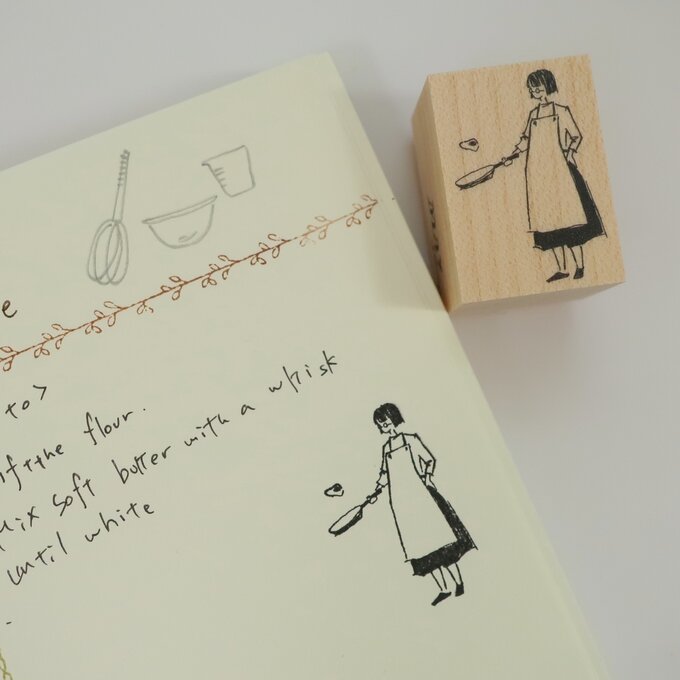 e
to>
ift the flour.
Mix soft butter with a whisk
until white